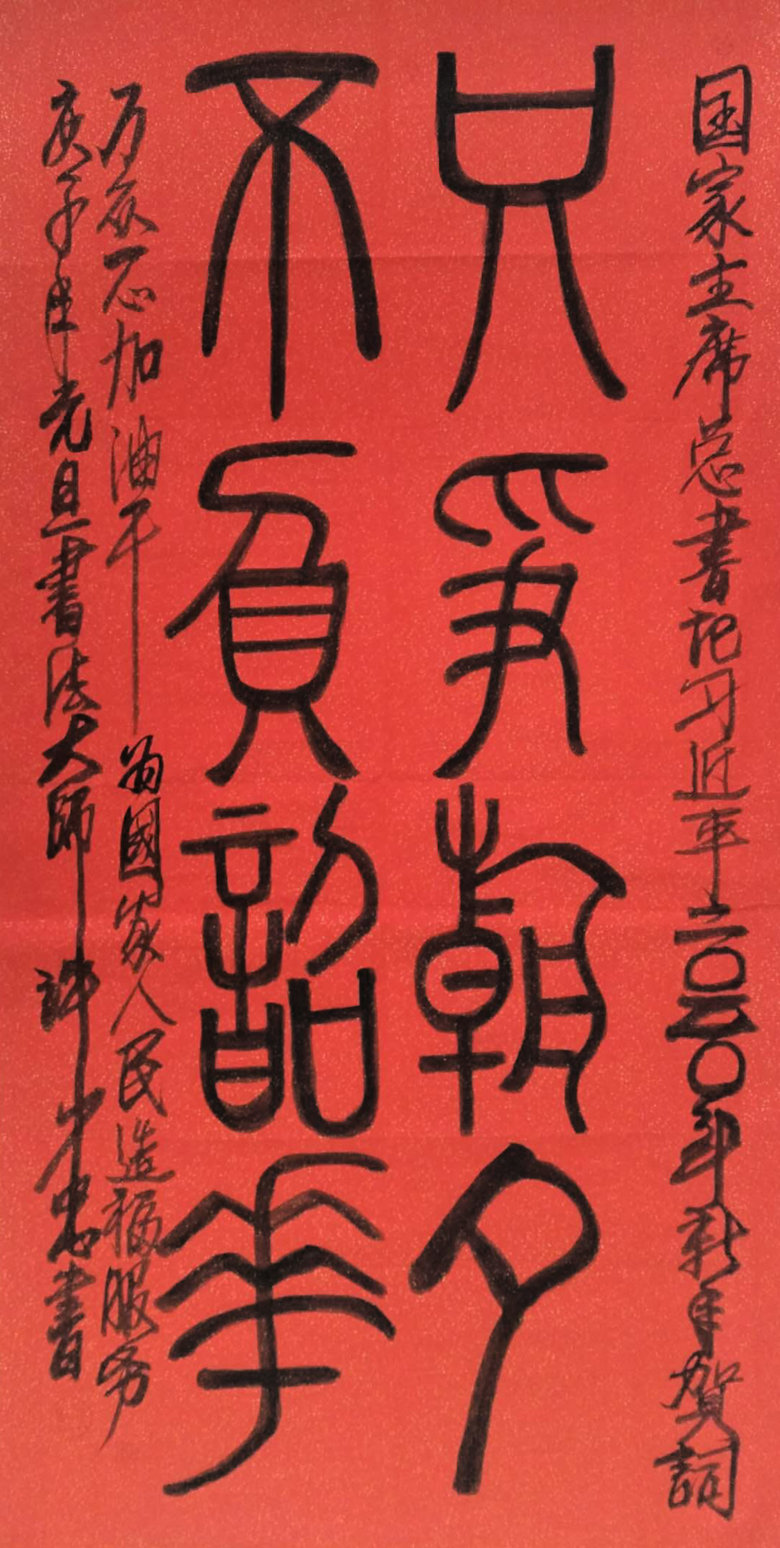 国家主席总书记习近平二〇二〇年新年贺词
只争朝夕
不負韶华
万众一心加油干 为國家人民造福服务
庚子年元旦書法大師許少忠書